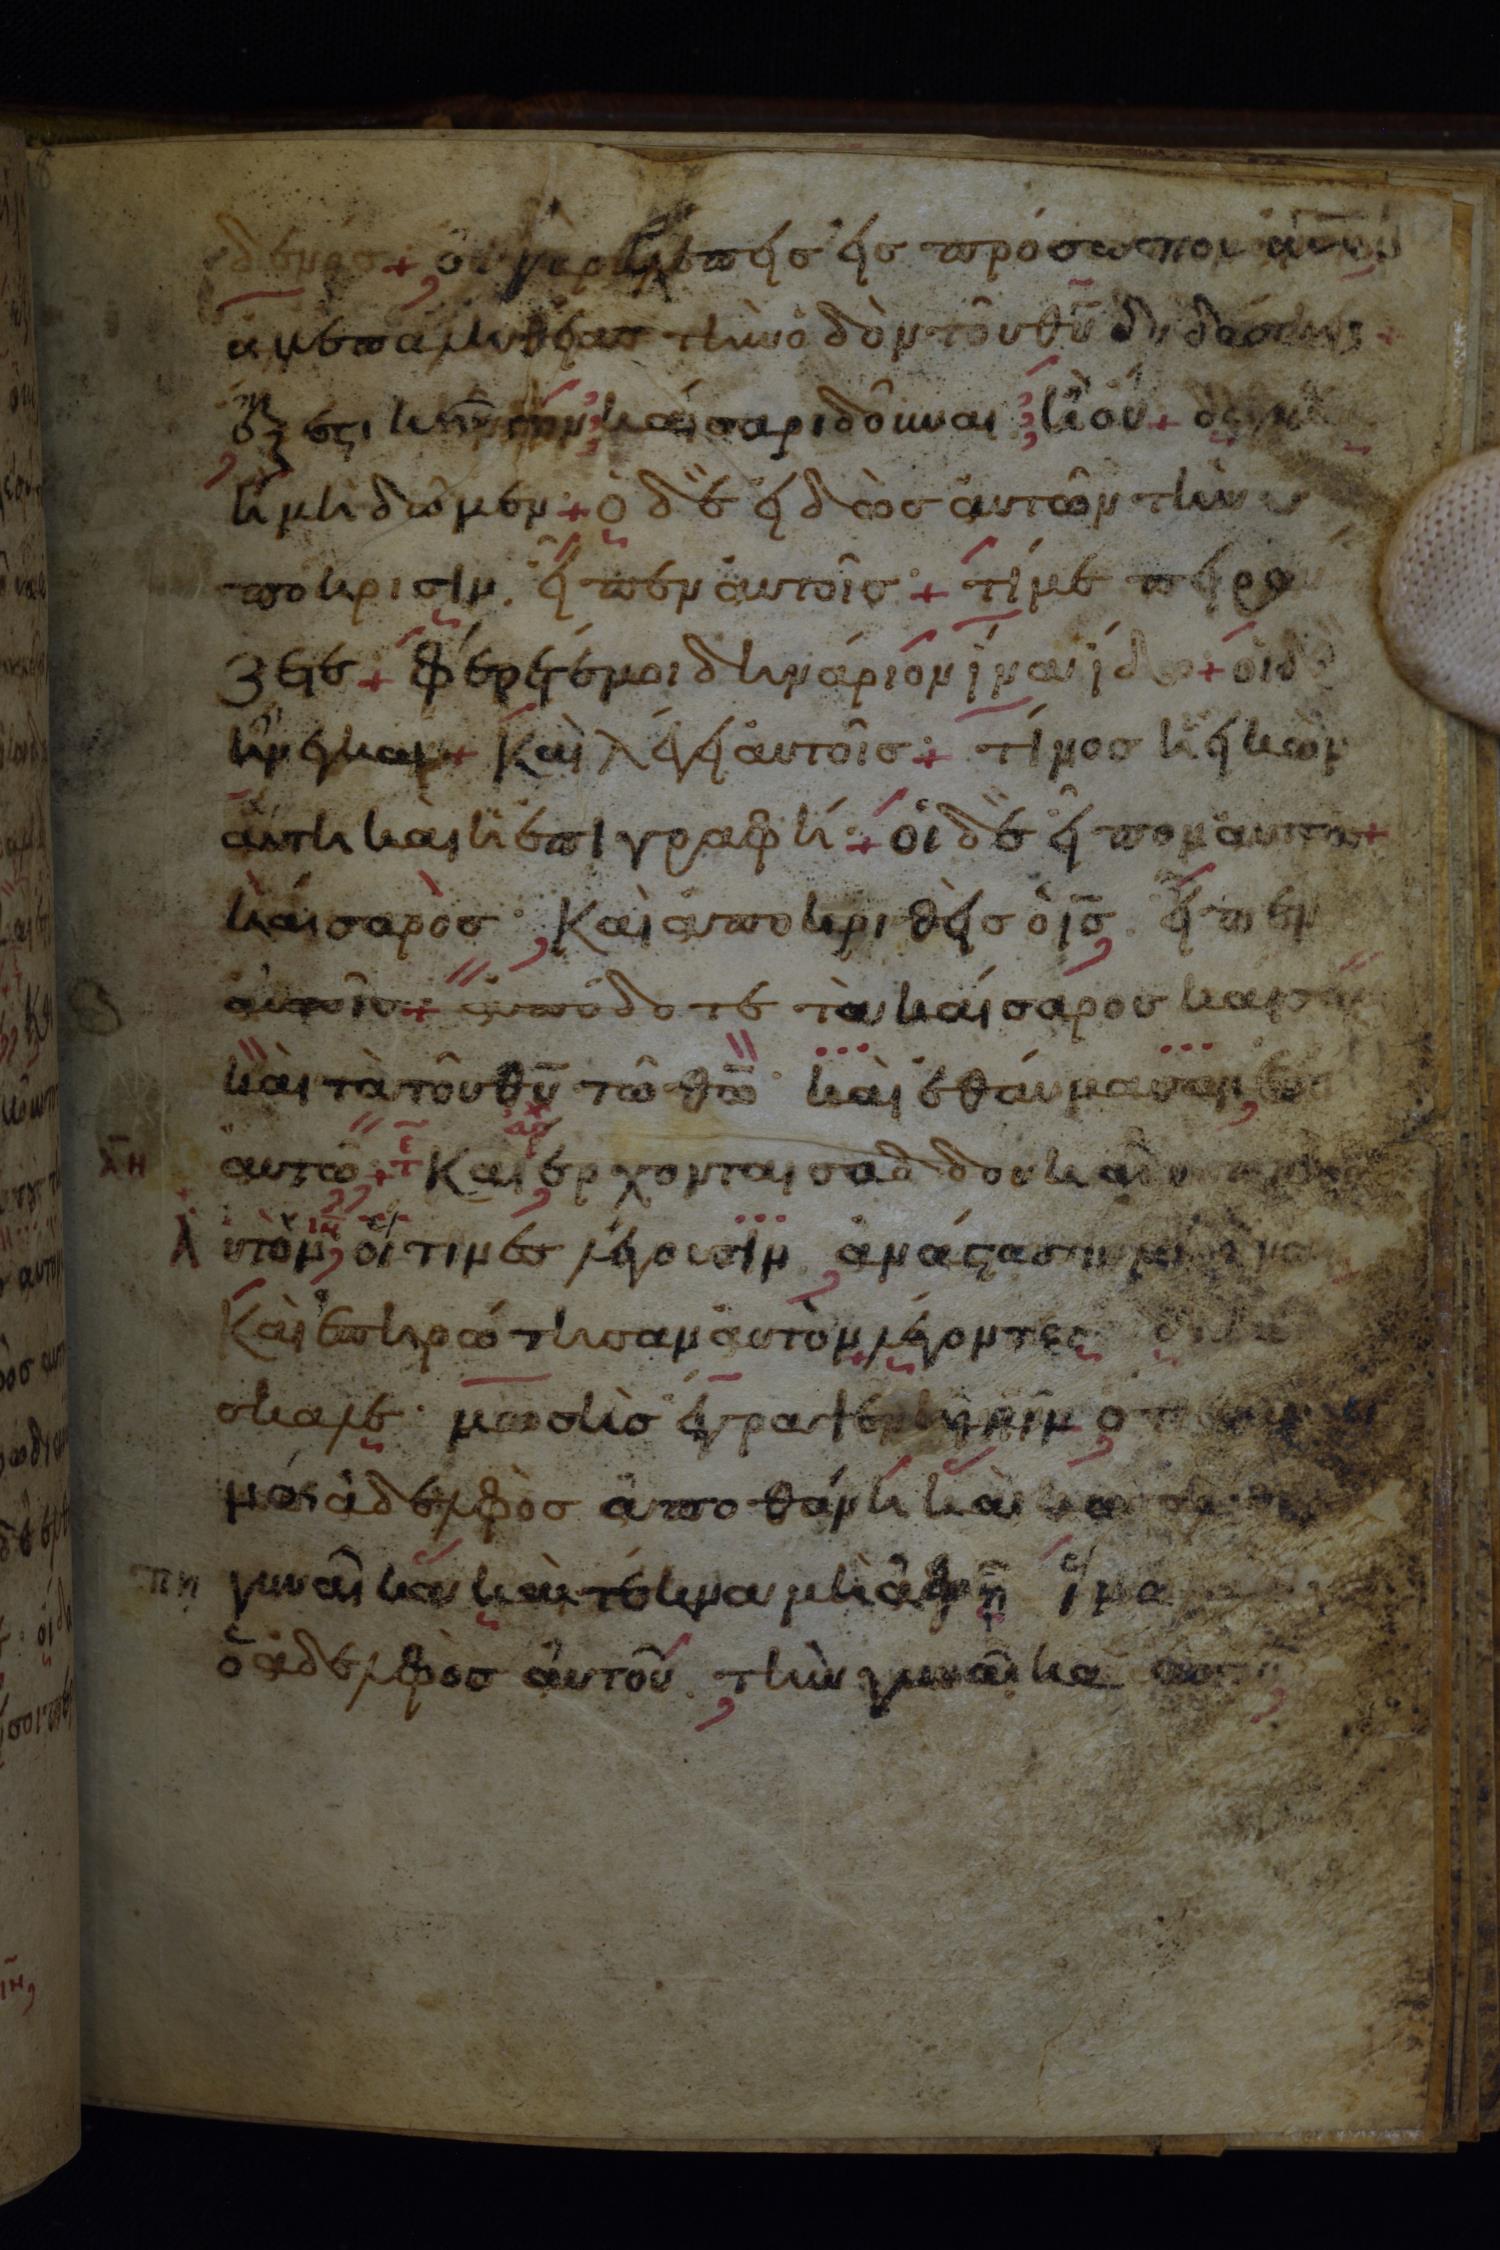 δενός + οὐ γὰρ βλέπης εἰς πρόσωπον ἀνῶν
ἀλλ επαληθείας τὴν ὁδὸν τοῦ θῦ διδάσκεις +
ἔξεστι κῆνσον καίσαρι δοῦναι ἢ οὔ +
ἢ μὴ δῶμεν + ὁ δὲ εἰδὼς αὐτῶν τὴν
πόκρισιν. εἶπεν αὐτοῖς + τί με πειρά
ζετε + φέρετέ μοι δηνάριον ἵνα ἴδω + οἱ δὲ
ἤνεγκαν + Καὶ λέγει αὐτοῖς + τίνος ἡ εἰκὼν
αὕτη καὶ ἡ επιγραφή + οἱ δὲ εἶπον αὐτῶ +
καίσαρος Καὶ ἀποκριθεὶς ὁ ις εἶπεν
αὐτοῖς + ἀπόδοτε τὰ καίσαρος καίσαρι
καὶ τὰ τοῦ θῦ τῶ θῶ καὶ ἐθαύμασαν ἐπ
αὐτῶ + Καὶ ερχονται σαδδουκαῖοι
λη
αυτὸν, οἵτινες λέγουσιν ἀνάστασιν μὴ εἶναι
Καὶ ἐπηρώτησαν αὐτὸν λέγοντες
σκαλε μωσῆς ἔγραψεν ἡμῖν ὁ
νός ἀδελφὸς ἀποθάνη καὶ
γυναῖκα καὶ τέκνα μὴ ἀφῆ ἵνα
ὁ ἀδελφὸς αὐτοῦ τὴν γυναῖκα αὐτοῦ